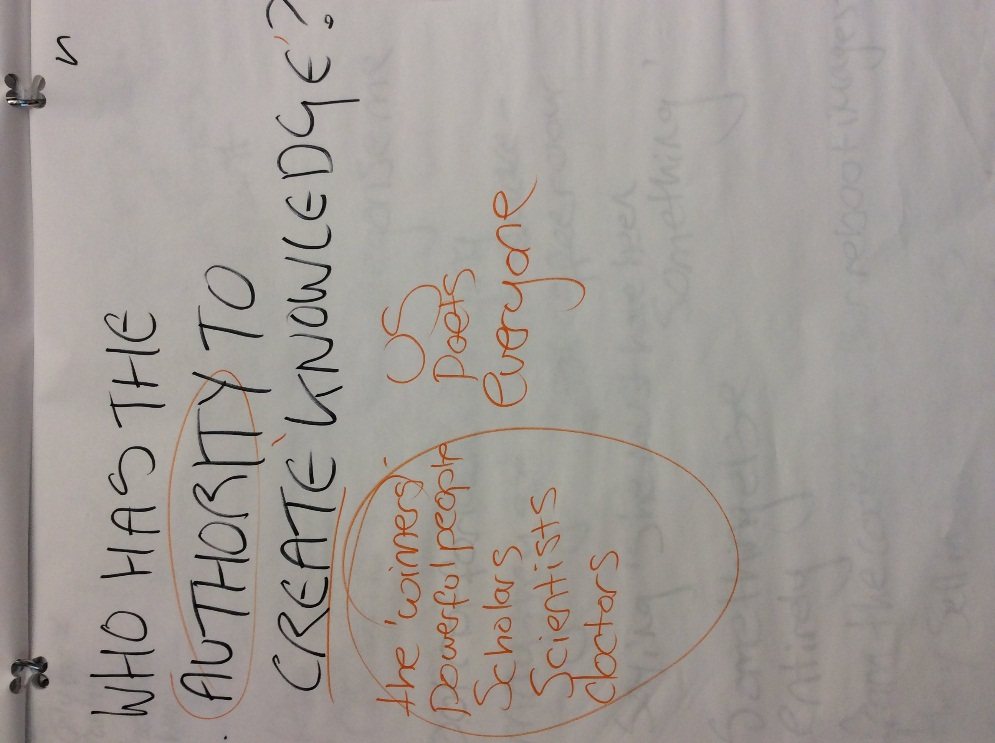 WHO HAS THE
AUTHORITY TO
CREATE 'KNOWLEDGE'?
the 'winners'
powerful people
Scholars
Scientists
doctors
US
poets
everyone
something